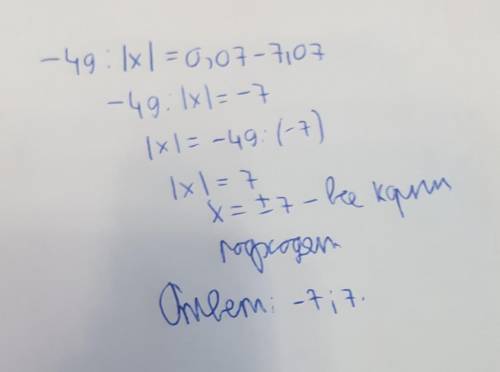 -49 : |x| = 0,07 - 7,07
-49 : |x| = -7
|x| = -49 : (-7)
|x| = 7
x = ±7 - все корни
подходят
Ответ: -7; 7.